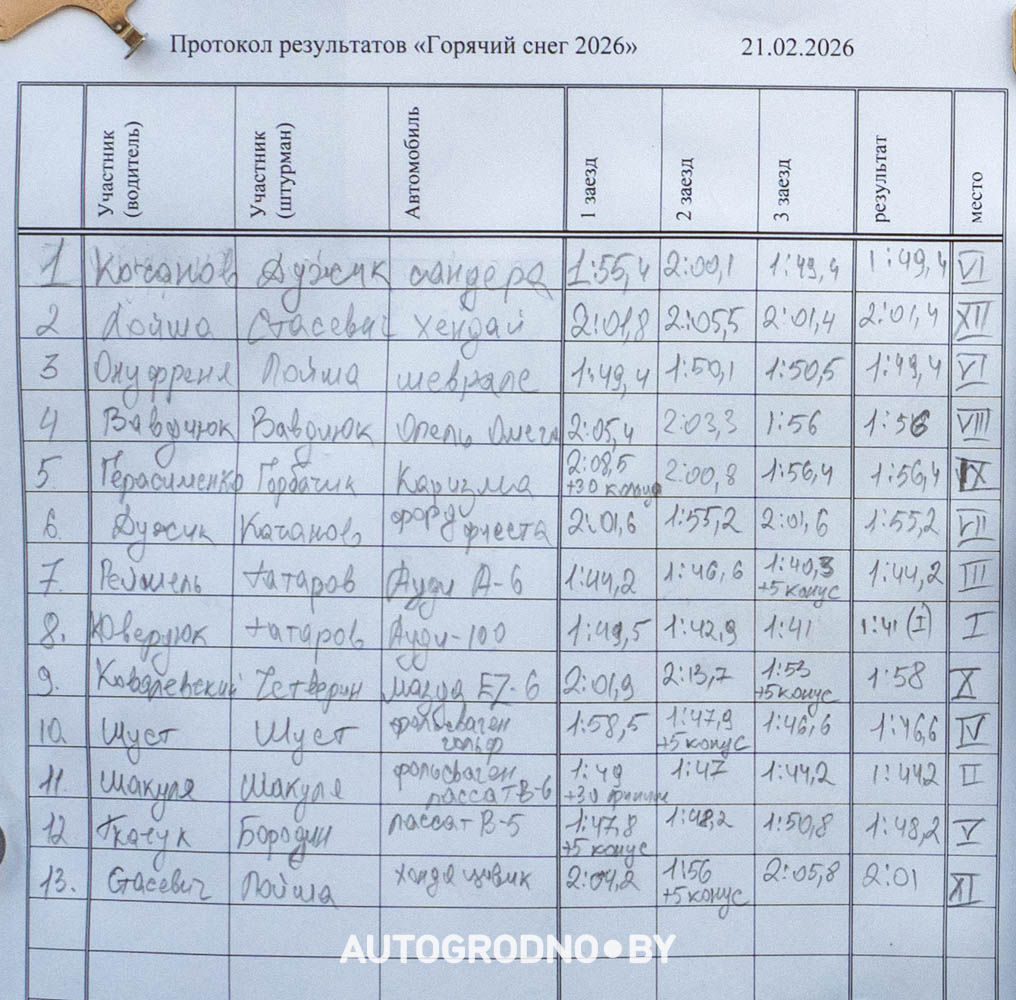 Протокол результатов «Горячий снег 2026» 21.02.2026
Участник (водитель) Участник (штурман) Автомобиль 1 заезд 2 заезд 3 заезд результат место
1 Качанов Дужик сандера 1:55,4 2:00,1 1:49,4 1:49,4 VI
2 Лойша Стасевич хендай 2:01,8 2:05,5 2:01,4 2:01,4 XII
3 Онуфреня Лойша шевроле 1:49,4 1:50,1 1:50,5 1:49,4 VI
4 Вавдиюк Вавдиюк Опель Омега 2:05,4 2:03,3 1:56 1:56 VIII
5. Герасименко Горбачик Каризма 2:08,5 +30 конус 2:00,8 1:56,4 1:56,4 IX
6. Дужик Качанов форд фиеста 2:01,6 1:55,2 2:01,6 1:55,2 VII
7. Рейшель татаров Ауди А-6 1:44,2 1:46,6 1:40,3 +5 конус 1:44,2 III
8. Коверзюк татаров Ауди-100 1:49,5 1:42,9 1:41 1:41 (I) I
9. Ковалевский Четверин мазда EZ-6 2:01,9 2:13,7 1:53 +5 конус 1:58 X
10. Шуст Шуст фольсваген гольф 1:58,5 1:47,9 +5 конус 1:46,6 1:46,6 IV
11. Шакуля Шакуля фольсваген пассат В-6 1:49 +30 1:47 1:44,2 1:442 II
12 Ткачук Бородин пассат В-5 1:47,8 +5 конус 1:48,2 1:50,8 1:48,2 V
13. Стасевич Лойша хонда цивик 2:04,2 1:56 +5 конус 2:05,8 2:01 XI
AUTOGRODNO•BY